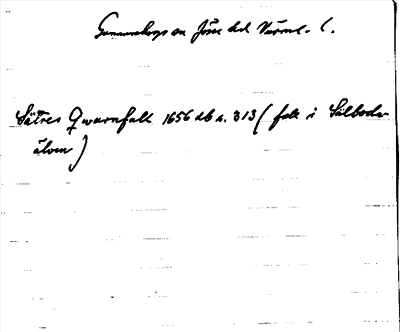 Gunnarskogs sn Jösse hd Värml. l.
Sätres Qwarnfall 1656 db s. 313 (fall i Sälboda-
älven)